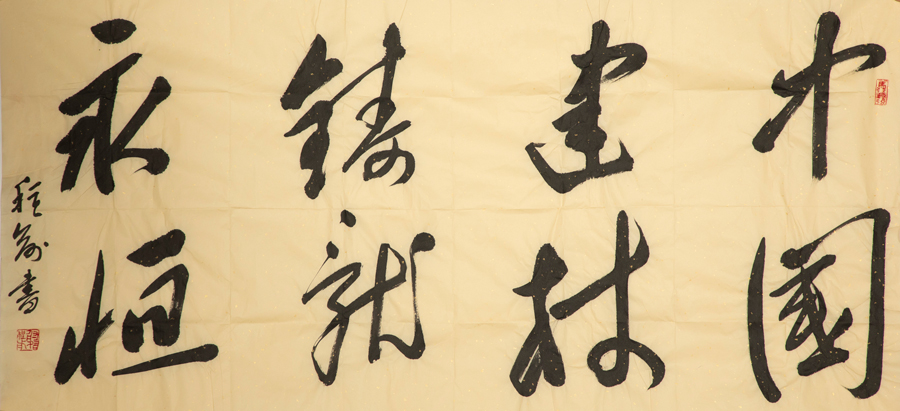 中國
建材
鑄就
永恒
程 書